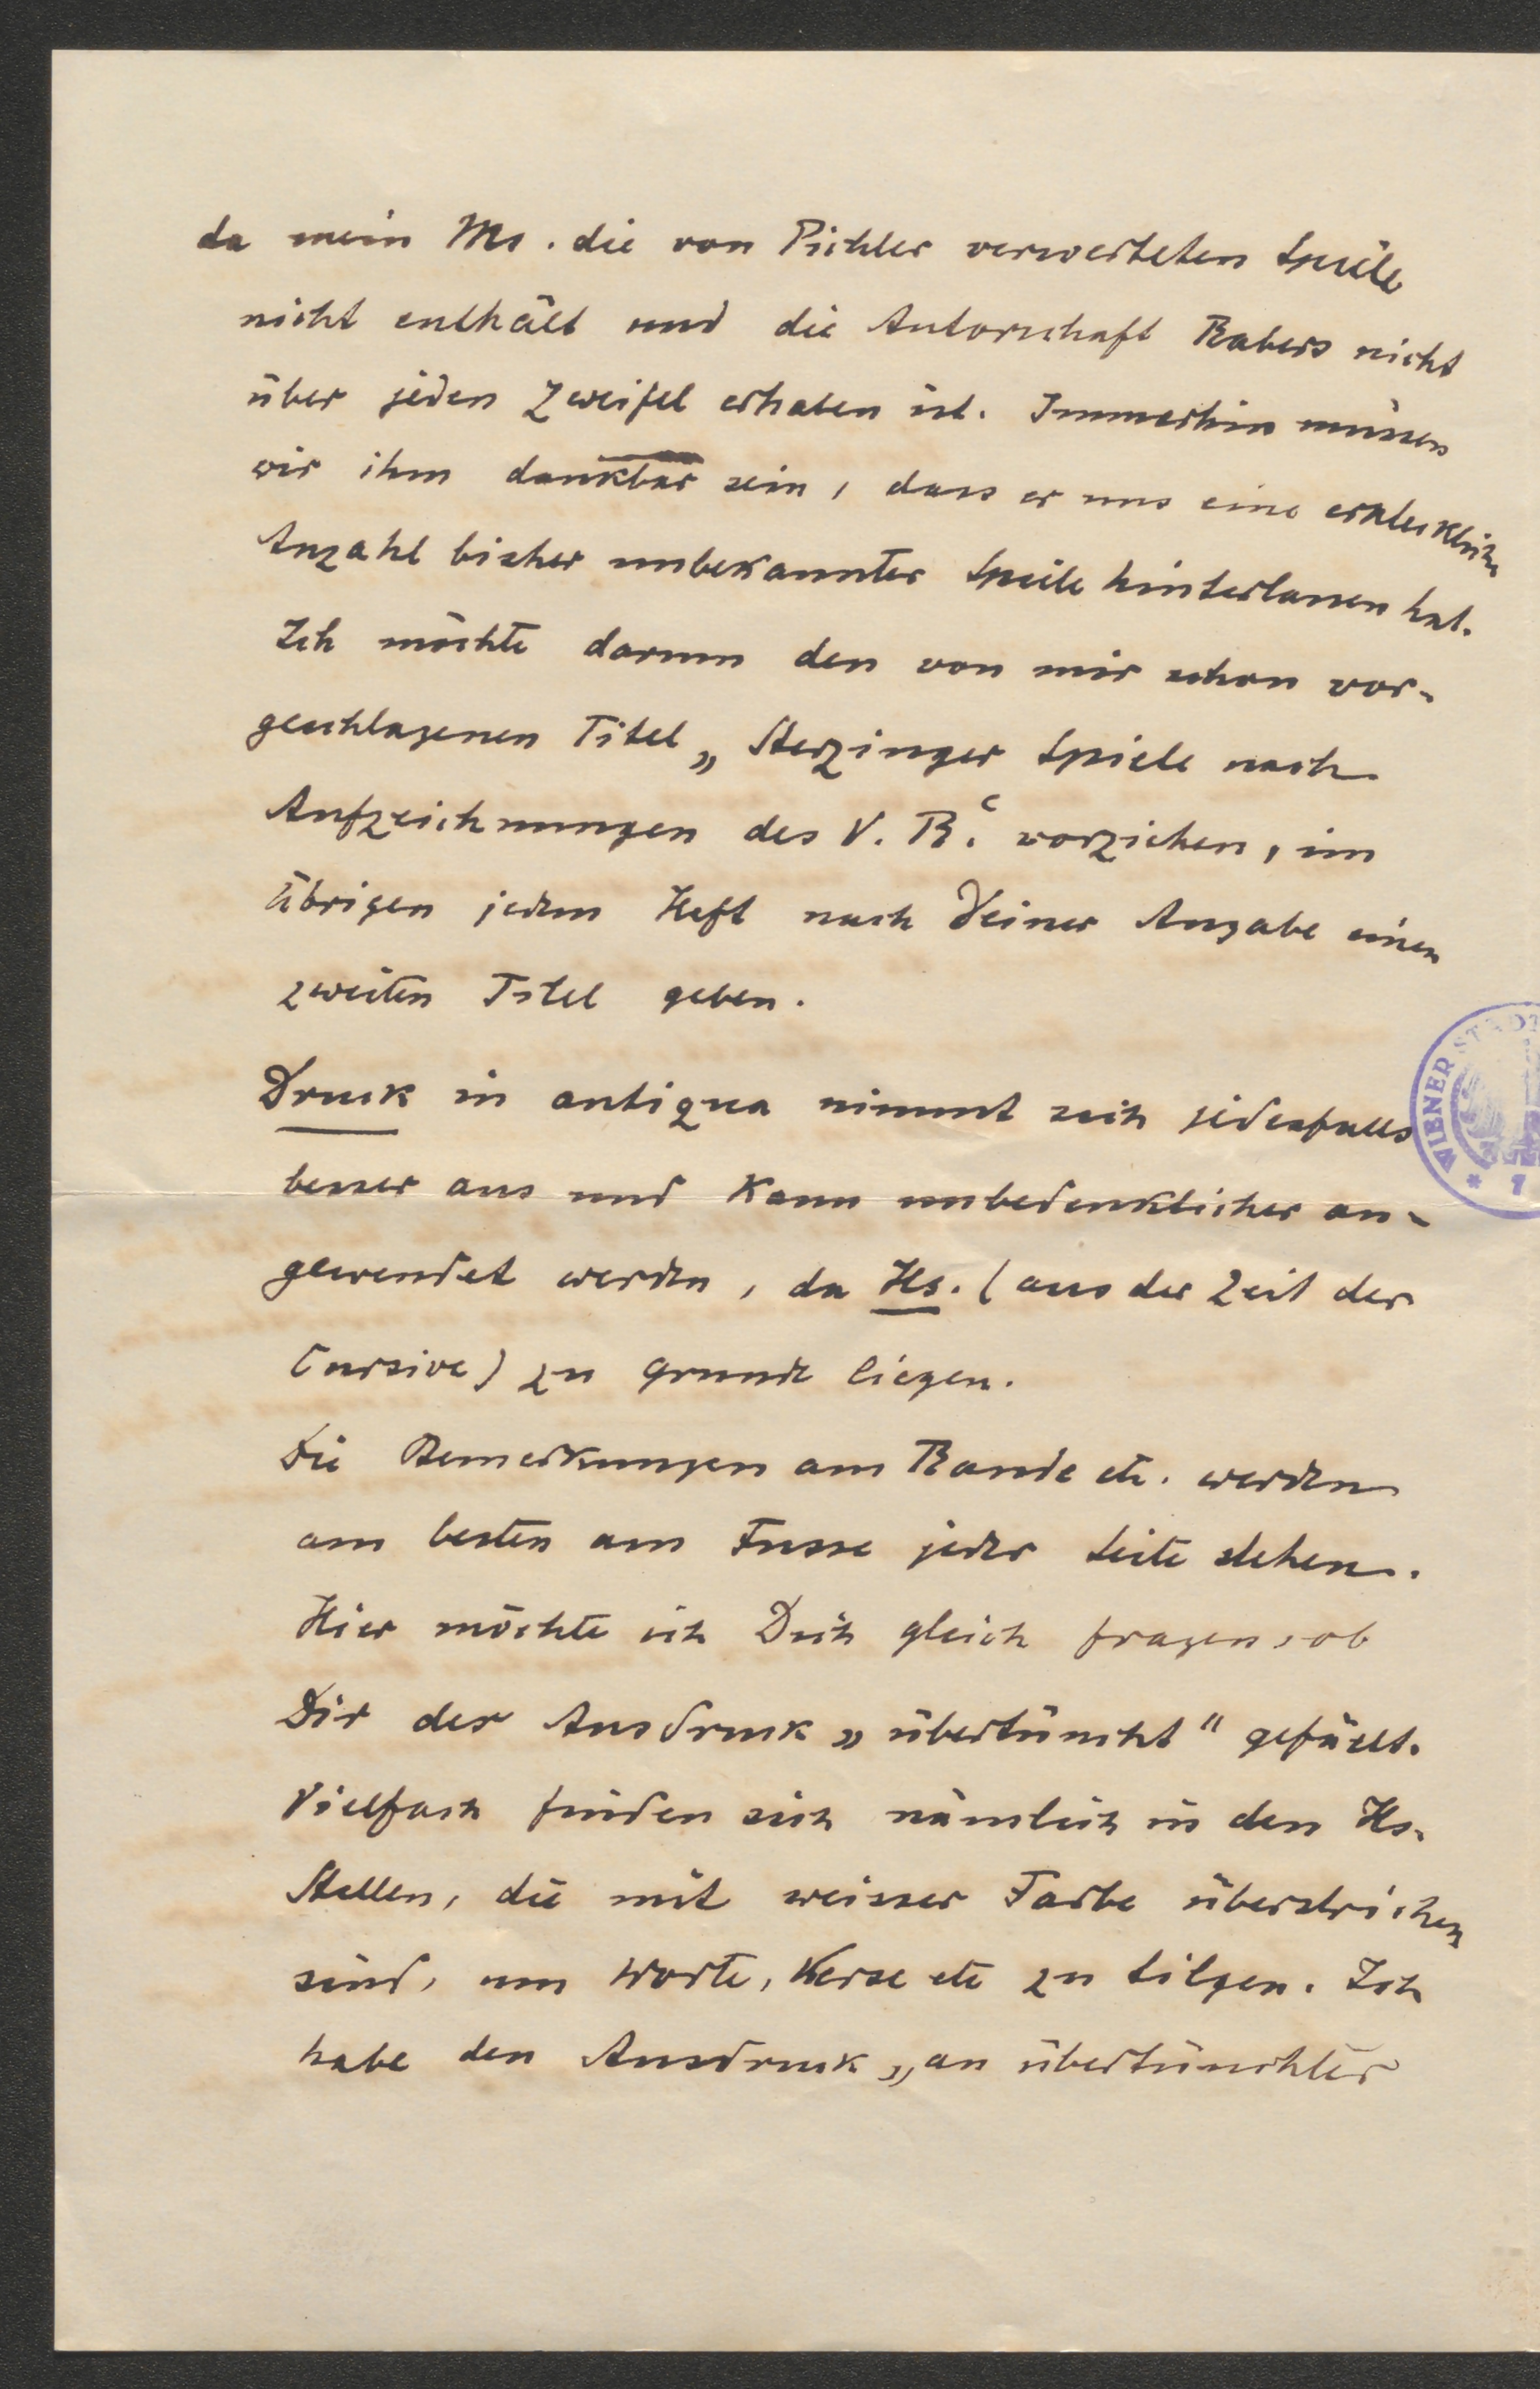 da mein Ms. die von Pichler verwerteten Spiele
nicht enthält und die Autorschaft Rabers nicht
über jeden Zweifel erhaben ist. Immerhin müssen
wir ihm dankbar sein, dass er uns eine erkleckliche
Anzahl bisher unbekannter Spiele hinterlassen hat.
Ich möchte darum den von mir schon vor-
geschlagenen Titel „Sterzinger Spiele nach
Aufzeichnungen des V. R.“ vorziehen, im
übrigen jedem Heft nach Deiner Angabe einen
zweiten Titel geben.
Druck in antiqua nimmt sich jedenfalls
besser aus und kann unbedenklicher an-
gewendet werden, da Hs. (aus der Zeit der
Cursive) zu Grunde liegen.
Die Bemerkungen am Rande etc. werden
am besten am Fusse jeder Seite stehen.
Hier möchte ich Dich gleich fragen, ob
Dir der Ausdruck „übertüncht“ gefällt.
Vielfach finden sich nämlich in den Hs.
Stellen, die mit weisser Farbe überstrichen
sind, um Worte, Verse etc zu tilgen. Ich
habe den Ausdruck „an übertünchter
WIENER STADT
* 1